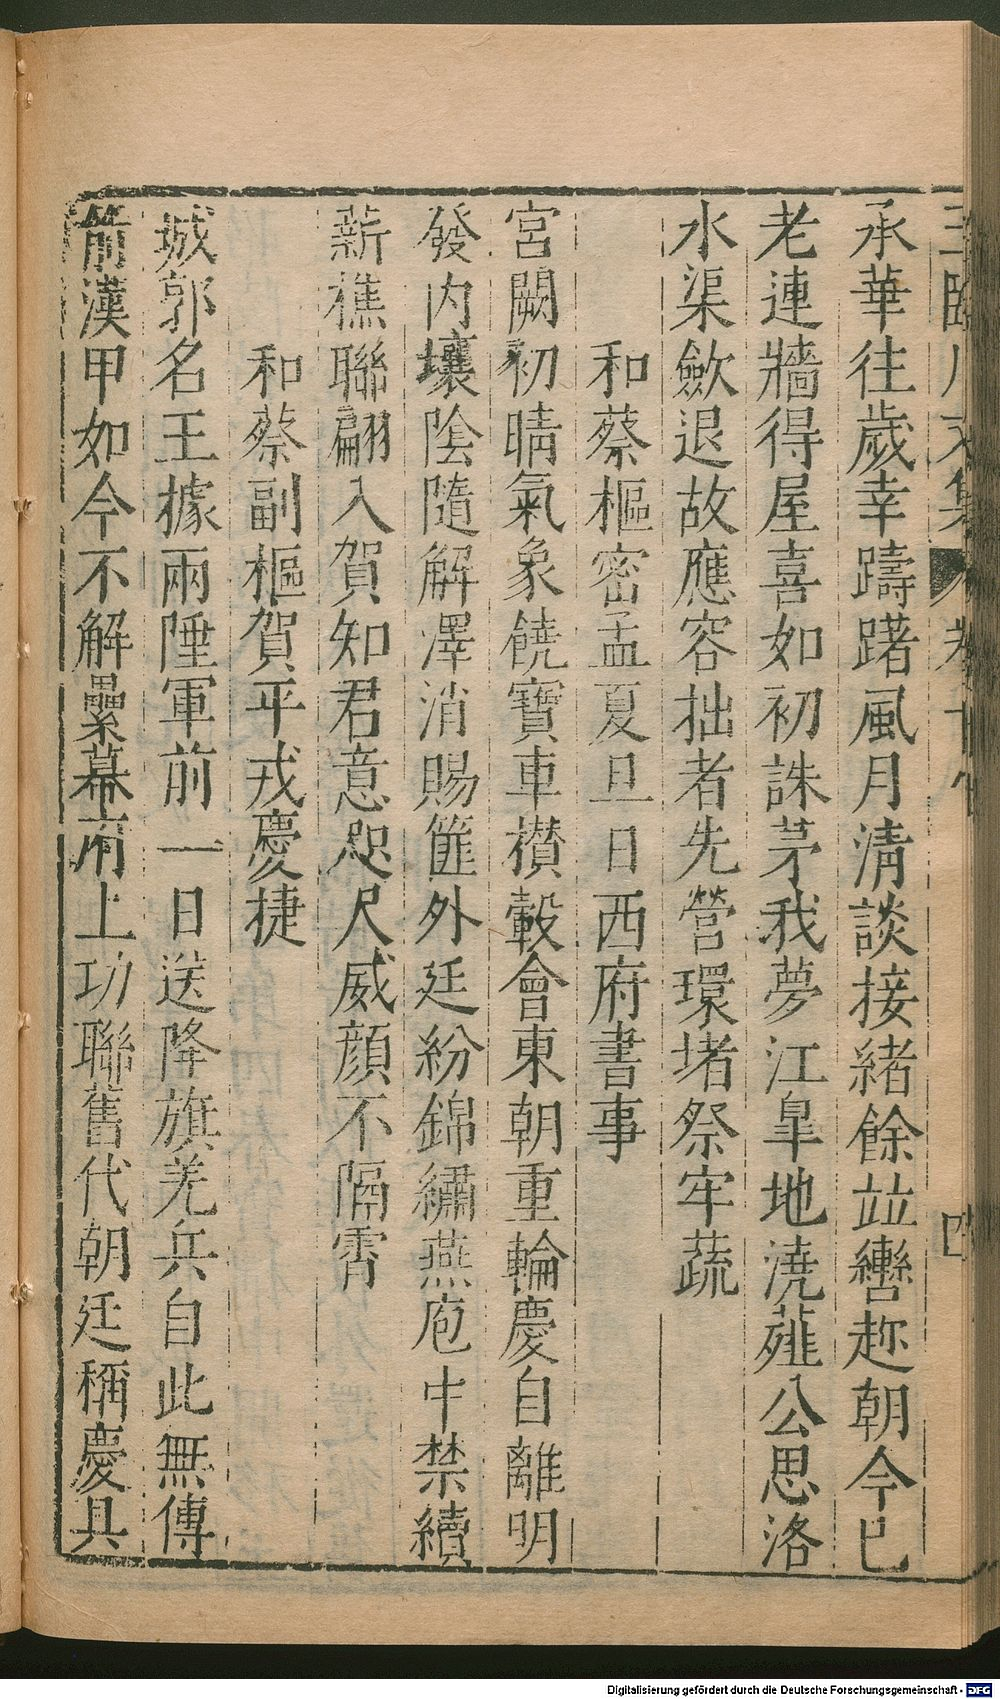 王臨川文集 卷十八 四
承華往歲幸躊躇風月清談接緒餘竝轡趂朝今已
老連牆得屋喜如初誅茅我夢江臯地澆薤公思洛
水渠歛退故應容拙者先營環堵祭牢蔬
和蔡樞密孟夏旦日西府書事
宮闕初晴氣象饒寶車攅轂會東朝重輪慶自離明
發內壤陰隨解澤消賜篚外廷紛錦繡燕庖中禁續
薪樵聯翩入賀知君意咫尺威顔不隔霄
和蔡副樞賀平戎慶捷
城郭名王據兩陲軍前一日送降旗羌兵自此無傳
箭漢甲如今不解纍幕府上功聯舊伐朝廷稱慶具
Digitalisierung gefördert durch die Deutsche Forschungsgemeinschaft - DFG